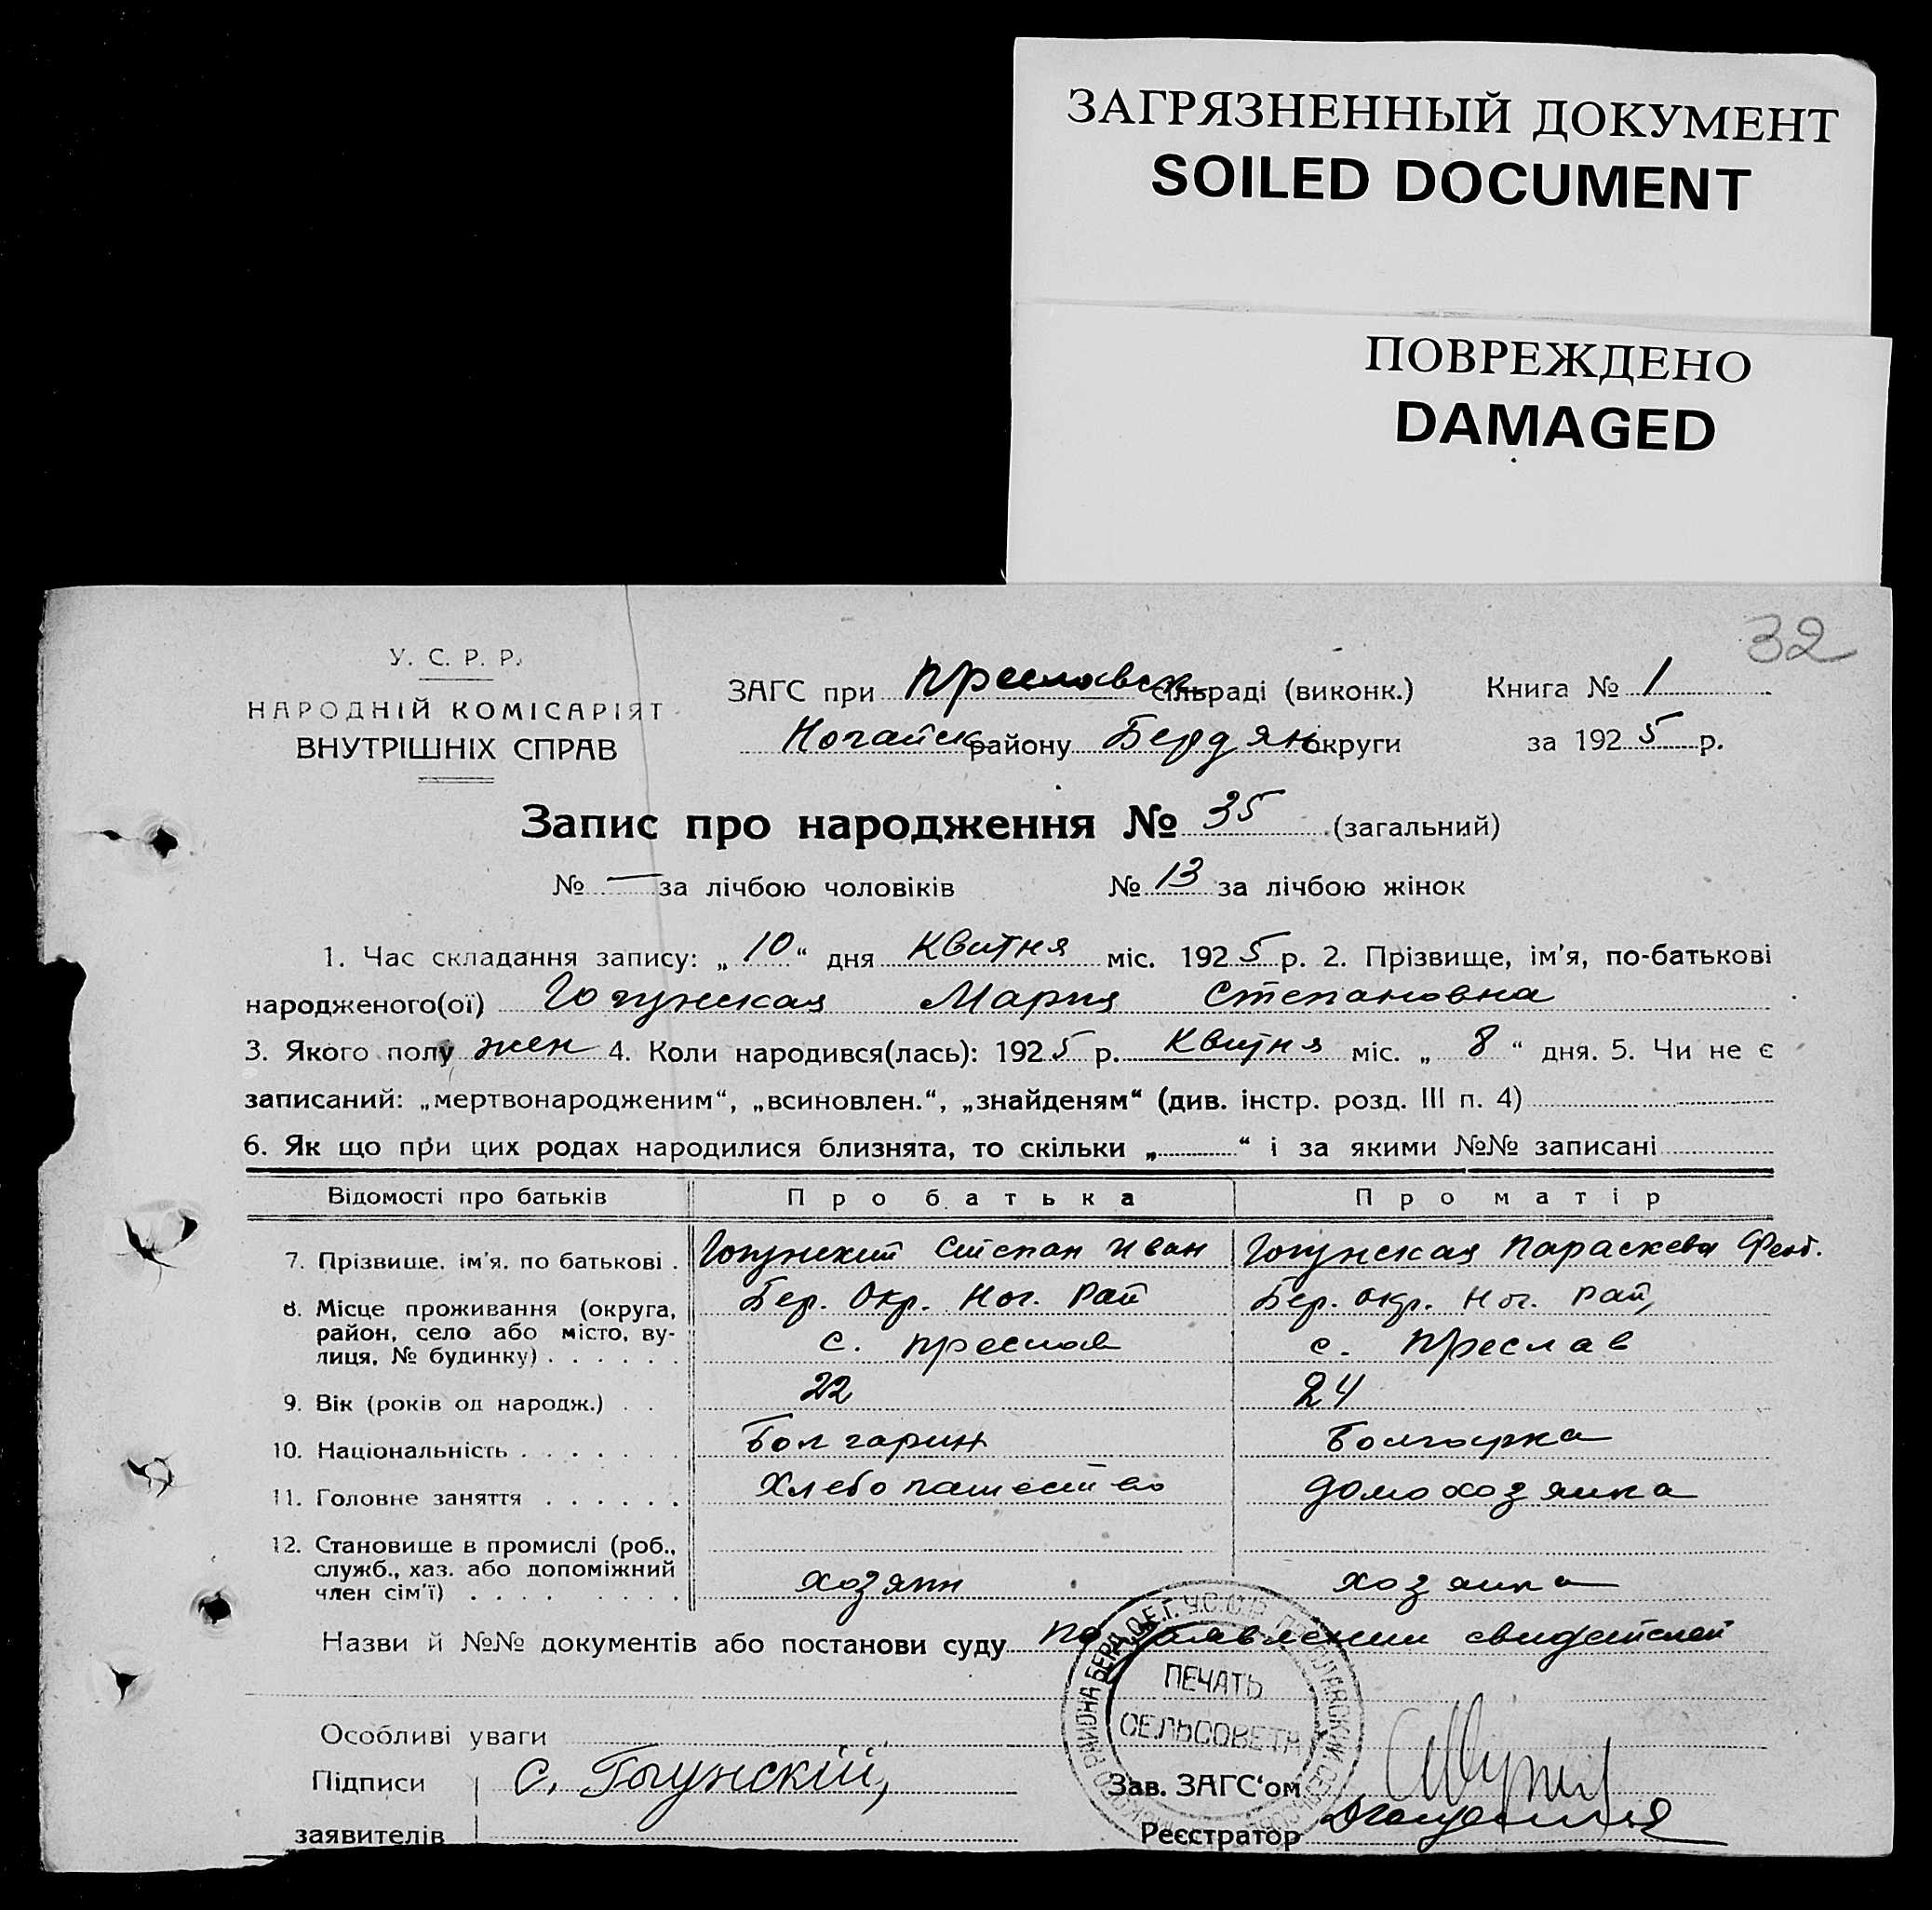 ЗАГРЯЗНЕННЫЙ ДОКУМЕНТ
SOILED DOCUMENT
ПОВРЕЖДЕНО
DAMAGED
32
У. С. Р. Р.
НАРОДНІЙ КОМІСАРІЯТ
ВНУТРІШНІХ СПРАВ
ЗАГС при Преславск сільраді (виконк.) Книга № 1
Ногайск району Бердян округи за 1925 р.
Запис про народження № 35 (загальний)
№ — за лічбою чоловіків № 13 за лічбою жінок
1. Час складання запису: „10“ дня Квитня міс. 1925 р. 2. Прізвище, ім'я, по-батькові
народженого(ої) Мария Степановна
3. Якого полу жен 4. Коли народився(лась): 1925 р. Квитня міс. „8“ дня. 5. Чи не є
записаний: „мертвонародженим“, „всиновлен.“, „знайденям“ (див. інстр. розд. III п. 4)
6. Як що при цих родах народилися близнята, то скільки „ “ і за якими №№ записані
Відомості про батьків Про батька Про матір
7. Прізвище, ім'я, по батькові . Степан Иван Параскева
8. Місце проживання (округа, район, село або місто, вулиця, № будинку) . . . . . . Бер. Окр. Ног. Рай с. Преслав Бер. окр. Ног. рай, с. Преслав
9. Вік (років од народж.) . . 22 24
10. Національність . . . . . . . Болгарин Болгарка
11. Головне заняття . . . . . . Хлебопашество домохозяйка
12. Становище в промислі (роб., служб., хаз. або допоміжний член сім'ї) . . . . . . . . хозяин хозяйка
Назви й №№ документів або постанови суду по заявлении свидетелей
ПЕЧАТЬ
СЕЛЬСОВЕТА
Особливі уваги
Підписи С.
Зав. ЗАГС'ом
заявителів
Реєстратор